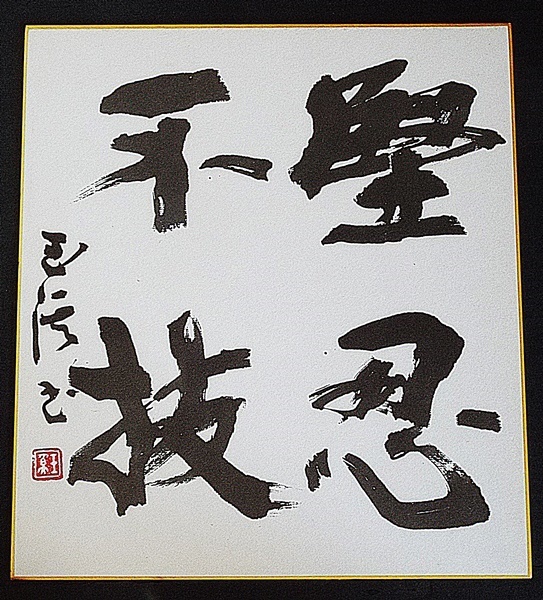 堅忍
不抜